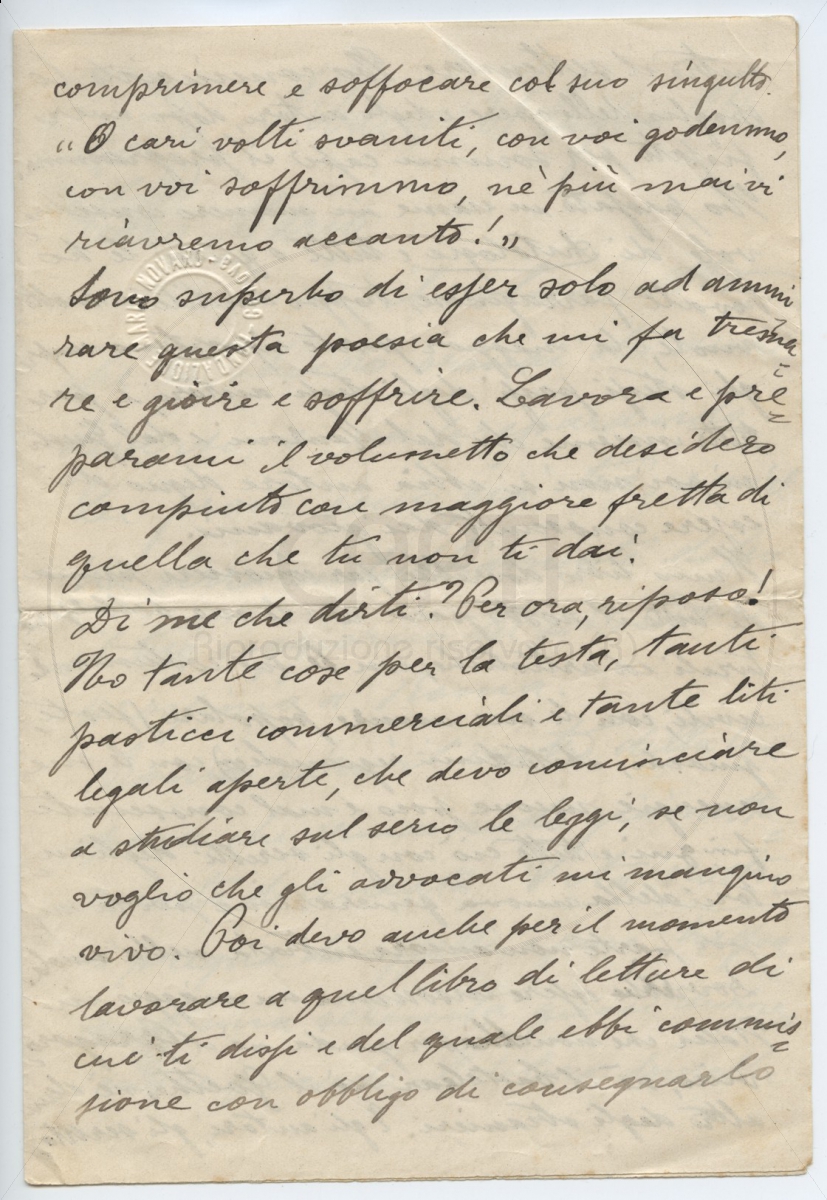 comprimere e soffocare col suo singulto.
"O cari volti svaniti, con voi godemmo,
con voi soffrimmo, nè più mai vi
riavremo accanto!"
Sono superbo di esser solo ad ammi
rare questa poesia che mi fa trema=
re e gioire e soffrire. Lavora e pre=
parami il volumetto che desidero
compiuto con maggiore fretta di
quella che tu non ti dai.
Di me che dirti? Per ora, riposo!
Ho tante cose per la testa, tanti
pasticci commerciali e tante liti
legali aperte, che devo cominciare
a studiare sul serio le leggi, se non
voglio che gli avvocati mi mangino
vivo. Poi devo anche per il momento
lavorare a quel libro di letture di
cui ti dissi e del quale ebbi commis=
sione con obbligo di consegnarlo